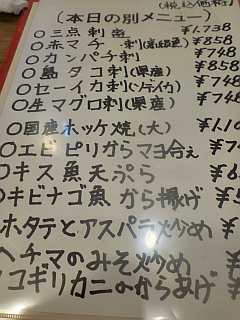 (税込価格)
(本日の別メニュー)
○三点刺盛 ¥1.738
○赤マチ 刺(高級魚) ¥858
○カンパチ刺 ¥748
○島タコ刺(県産) ¥858
○セーイカ刺(ソデイカ) ¥748
○生マグロ刺(県産) ¥748
○国産ホッケ焼(大) ¥1.10
○エビピリからマヨ合え ¥7
○キス魚天ぷら ¥6
○キビナゴ魚から揚げ ¥
ホタテとアスパラ炒め ¥
ヘチマのみそ炒め ¥
ノコギリカニのからあげ ¥